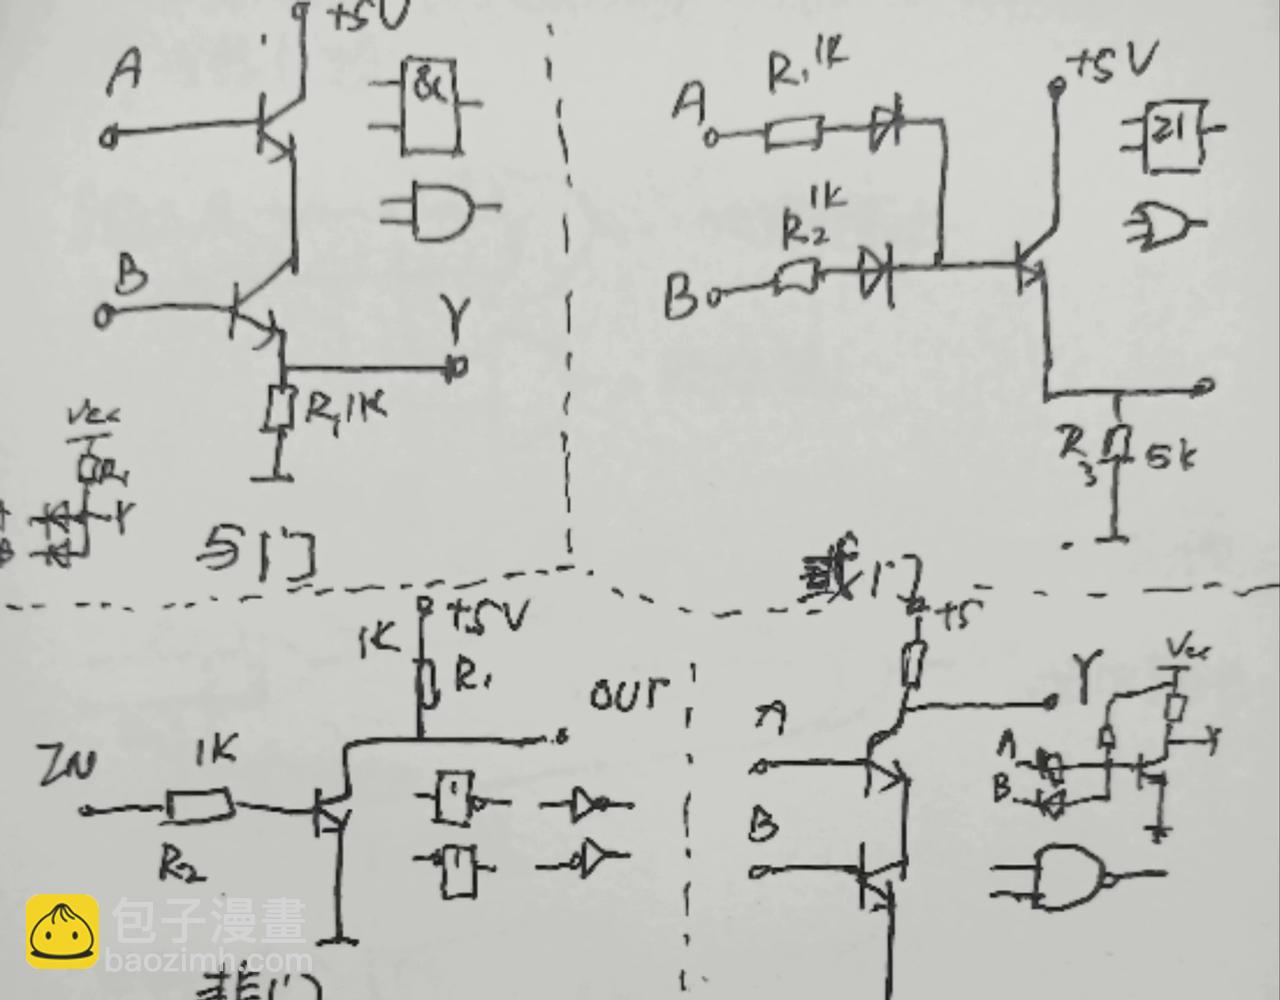 +5V
A
&
B
Y
R1 1K
Vcc
R
Y
B
与门
R1 1K
+5V
A
≥1
R2 1K
B
R3 5K
或门
+5V
1K
R1
OUT
IN
1K
R2
1
1
非门
+5
Y
Vcc
A
A
B
Y
B
包子漫畫
baozimh.com